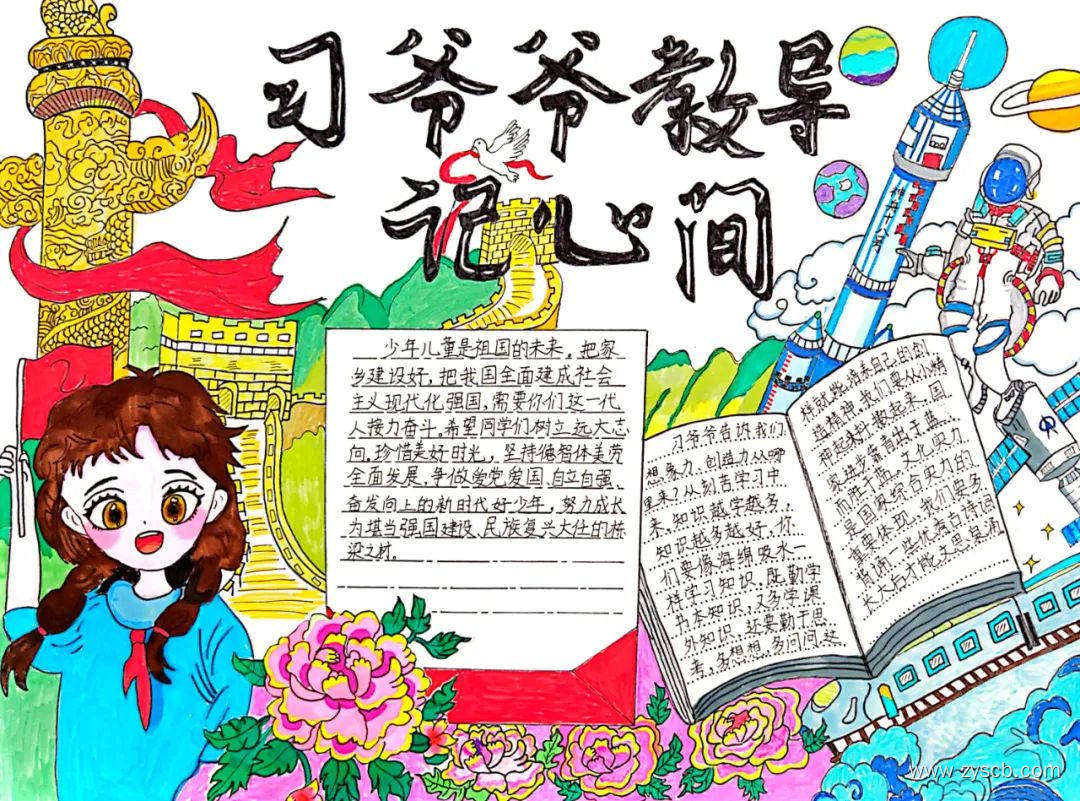 习爷爷教导
记心间
神舟十八号
少年儿童是祖国的未来。把家
乡建设好,把我国全面建成社会
主义现代化强国,需要你们这一代
人接力奋斗。希望同学们树立远大志
向,珍惜美好时光,坚持德智体美劳
全面发展,争做爱党爱国、自立自强、
奋发向上的新时代好少年,努力成长
为堪当强国建设、民族复兴大任的栋
梁之材。
习爷爷告诉我们,
想象力、创造力从哪
里来?从刻苦学习中
来,知识越学越多,
知识越多越好,你
们要像海绵吸水一
样学习知识,既勤学
书本知识,又多学课
外知识,还要勤于思
考,多想想,多问问,这
样就能培养自己的创
造精神。我们要从小精
神起来,
发进步,青出于蓝,
而胜于蓝。文化实力
是国家综合实力的
重要体现,我们要多
背诵一些优秀古诗词,
长大后才能文思泉涌
www.zyscb.com